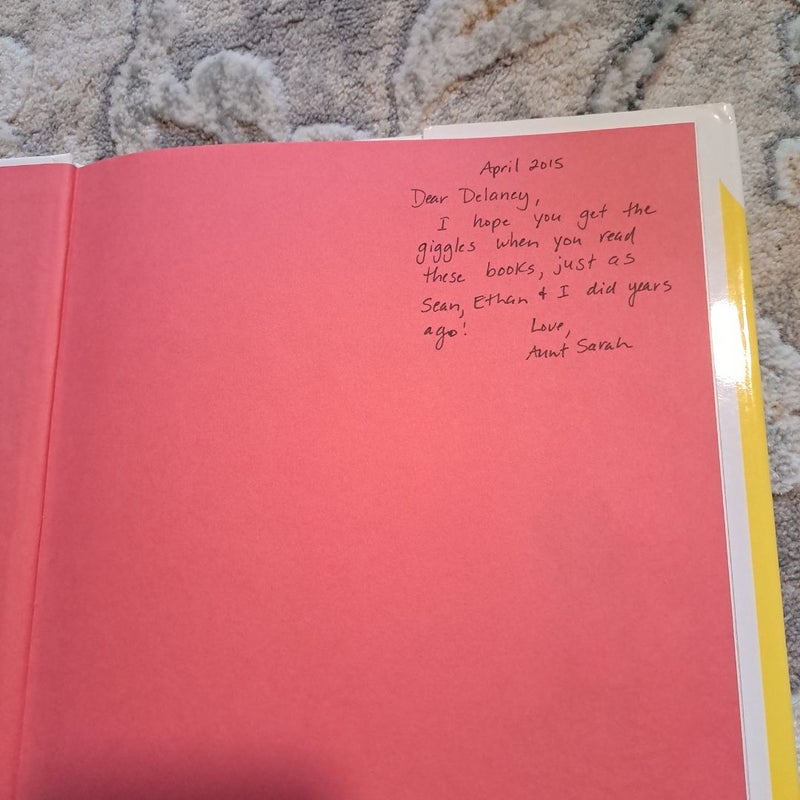 April 2015
Dear Delaney,
I hope you get the
giggles when you read
these books, just as
Sean, Ethan & I did years
ago! Love,
Aunt Sarah